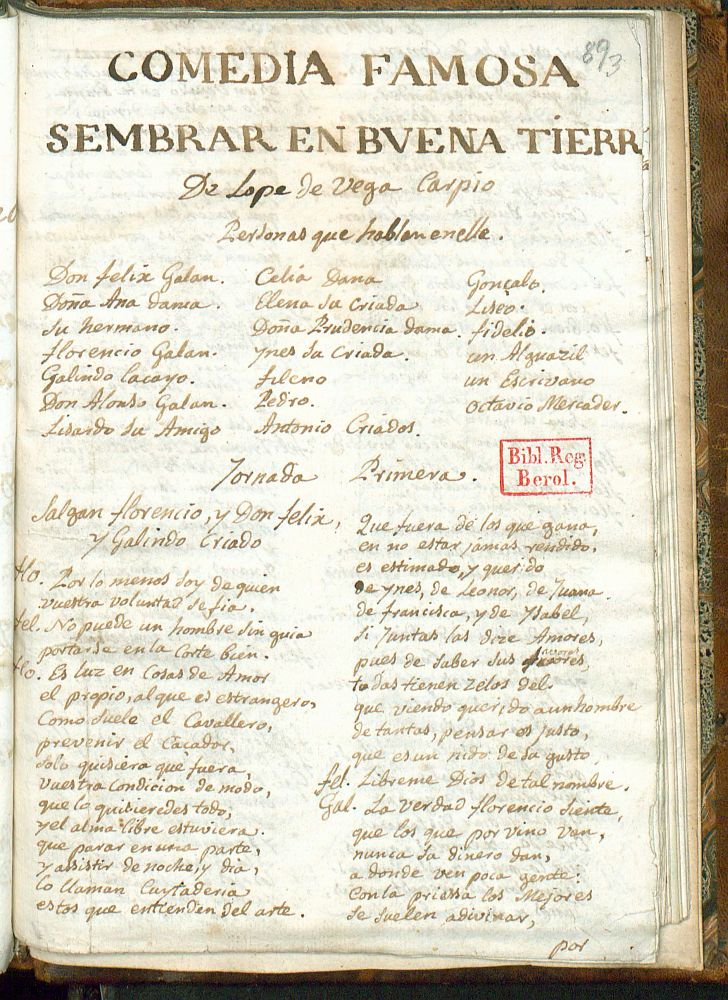 893
COMEDIA FAMOSA
SEMBRAR EN BVENA TIERR
De Lope de Vega Carpio
Personas que hablan enella.
Don felix Galan.
Doña Ana dama.
Su hermano.
florencio Galan.
Galindo lacayo.
Don Alonso Galan.
Lisardo su Amigo
Celia Dama
Elena su Criada
Doña Prudencia dama.
ynes sa Criada.
fileno
Pedro.
Antonio Criados.
Gonçalo.
Liseo.
fidelio.
un Alguazil
un Escrivano
Octavio Mercader.
Jornada Primera.
Bibl. Reg.
Berol.
Salgan florencio, y Don felix,
y Galindo Criado
flo. Por lo menos soy de quien
vuestra voluntad se fia.
fel. No puede un hombre sin guia
portarse en la Corte bien.
flo. Es luz en cosas de Amor
el propio, al que es estrangero,
Como suele el Cavallero,
prevenir el Caçador,
solo quisiera que fuera,
vuestra condicion de modo,
que lo quisieredes todo,
y el alma libre estuviera.
que parar en una parte,
y assistir de noche, y dia,
lo llaman Cuytaderia
estos que entienden del arte.
Que fuera de los que gana,
en no estar jamas rendido,
es estimado, y querido
de ynes, de Leonor, de Juana.
de francisca, y de Ysabel,
si Juntas las dize Amores,
pues de saber sus favores,
todas tienen zelos del.
que viendo querido a un hombre
de tantas, pensar es justo,
que es un nido de su gusto,
fel. Libreme Dios de tal nombre.
Gal. La verdad florencio siente,
que los que por vino ven,
nunca su dinero dan,
a donde ven poca gente.
Con la priessa los Mejores
se suelen adivinar,
por